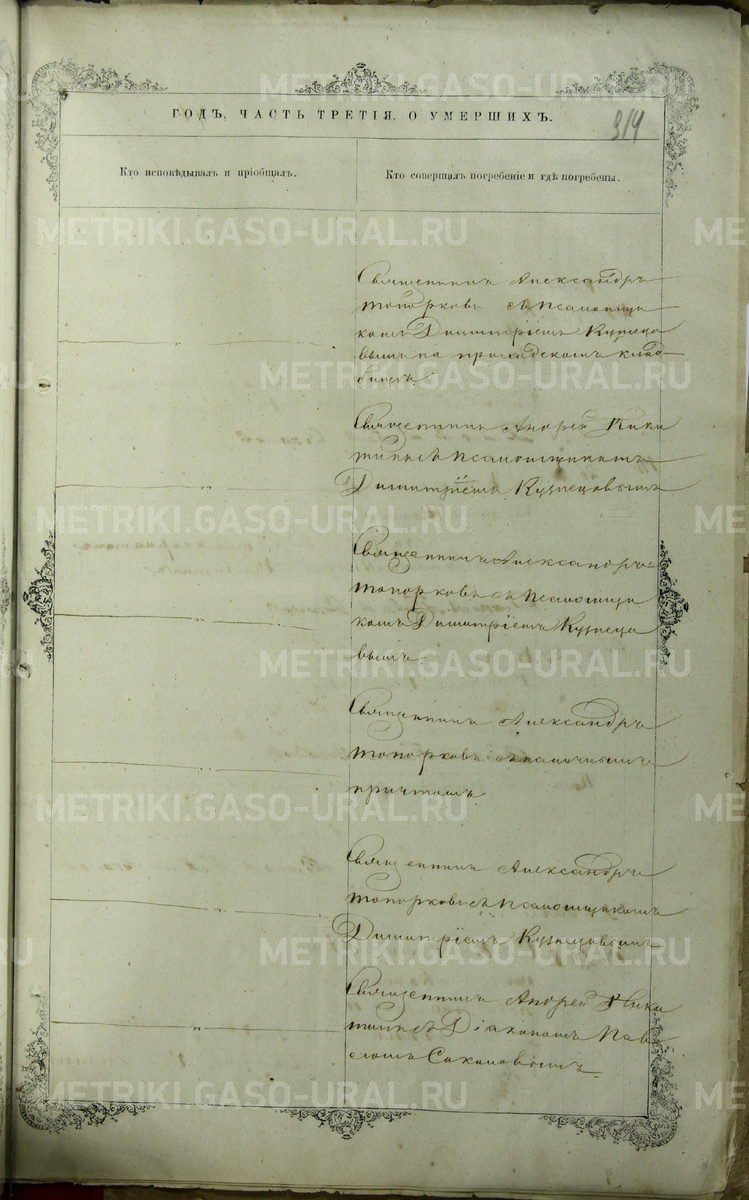 METRIKI.GASO-URAL.RU
ГОДЪ, ЧАСТЬ ТРЕТІЯ, О УМЕРШИХЪ.
314
Кто исповѣдывалъ и пріобщалъ.
Кто совершалъ погребеніе и гдѣ погребены.
Священникъ Александръ
Топорковъ съ псаломщи
комъ Димитріемъ Кузнецо
вымъ на приходскомъ клад
бищѣ.
Священникъ Андрей Ники
тинъ съ псаломщикомъ
Димитріемъ Кузнецовымъ
Священникъ Александръ
Топорковъ съ псаломщи
комъ Димитріемъ Кузнецо
вымъ.
Священникъ Александръ
Топорковъ съ наличнымъ
причтомъ.
Священникъ Александръ
Топорковъ съ псаломщикомъ
Димитріемъ Кузнецовымъ
Священникъ Андрей Ники
тинъ съ Діакономъ Пав
ломъ Соколовымъ.